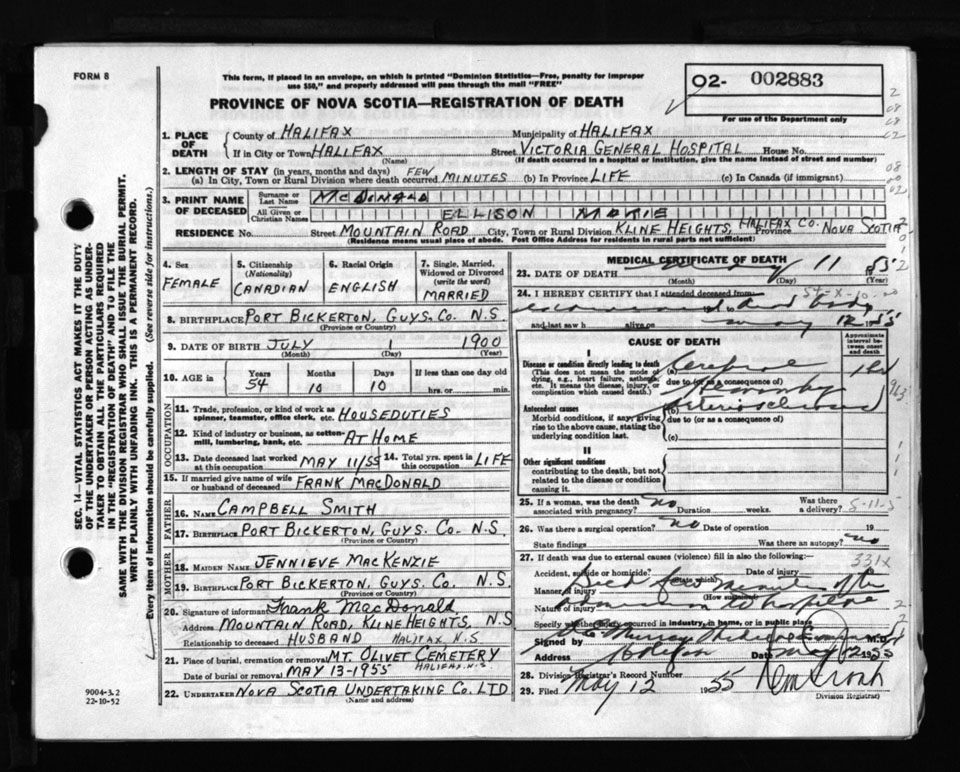 FORM 8
This form, if placed in an envelope, on which is printed "Dominion Statistics—Free, penalty for improper
use $50," and properly addressed will pass through the mail "FREE"
O2- 002883
For use of the Department only
PROVINCE OF NOVA SCOTIA—REGISTRATION OF DEATH
SEC. 14—VITAL STATISTICS ACT MAKES IT THE DUTY
OF THE UNDERTAKER OR PERSON ACTING AS UNDER-
TAKER TO OBTAIN ALL THE PARTICULARS REQUIRED
IN THE "REGISTRATION OF DEATH" AND TO FILE THE
SAME WITH THE DIVISION REGISTRAR WHO SHALL ISSUE THE BURIAL PERMIT.
WRITE PLAINLY WITH UNFADING INK. THIS IS A PERMANENT RECORD.
Every item of information should be carefully supplied. (See reverse side for instructions.)
1. PLACE OF DEATH County of HALIFAX Municipality of HALIFAX
If in City or Town HALIFAX Street VICTORIA GENERAL HOSPITAL House No.
(Name) (If death occurred in a hospital or institution, give the name instead of street and number)
2. LENGTH OF STAY (in years, months and days)
(a) In City, Town or Rural Division where death occurred FEW MINUTES (b) In Province LIFE (c) In Canada (if immigrant)
3. PRINT NAME OF DECEASED Surname or Last Name McDONALD
All Given or Christian Names ELLISON
RESIDENCE No. Street MOUNTAIN ROAD City, Town or Rural Division KLINE HEIGHTS, HALIFAX CO. Province NOVA SCOTIA
(Residence means usual place of abode. Post Office Address for residents in rural parts not sufficient)
4. Sex FEMALE
5. Citizenship (Nationality) CANADIAN
6. Racial Origin ENGLISH
7. Single, Married, Widowed or Divorced (write the word) MARRIED
8. BIRTHPLACE PORT BICKERTON, GUYS. CO. N.S.
(Province or Country)
9. DATE OF BIRTH JULY 1 1900
(Month) (Day) (Year)
10. AGE in Years 54 Months 10 Days 10 If less than one day old hrs. or min.
OCCUPATION
11. Trade, profession, or kind of work as spinner, teamster, office clerk, etc. HOUSEDUTIES
12. Kind of industry or business, as cotton-mill, lumbering, bank, etc. AT HOME
13. Date deceased last worked at this occupation MAY 11/55 14. Total yrs. spent in this occupation LIFE
15. If married give name of wife or husband of deceased FRANK MACDONALD
FATHER
16. NAME CAMPBELL SMITH
17. BIRTHPLACE PORT BICKERTON, GUYS. CO. N.S.
(Province or Country)
MOTHER
18. MAIDEN NAME JENNIEVE MACKENZIE
19. BIRTHPLACE PORT BICKERTON, GUYS. CO. N.S.
(Province or Country)
20. Signature of informant Frank MacDonald
Address MOUNTAIN ROAD, KLINE HEIGHTS, N.S
Relationship to deceased HUSBAND HALIFAX N.S
21. Place of burial, cremation or removal MT. OLIVET CEMETERY
Date of burial or removal MAY 13-1955 HALIFAX, N.S.
22. UNDERTAKER NOVA SCOTIA UNDERTAKING CO. LTD
(Name and address)
9004-3.2
22-10-52
MEDICAL CERTIFICATE OF DEATH
23. DATE OF DEATH May 11 1955
(Month) (Day) (Year)
24. I HEREBY CERTIFY that I attended deceased from
and last saw h alive on 12 1955
CAUSE OF DEATH
Approximate interval between onset and death
I
Disease or condition directly leading to death
(This does not mean the mode of dying, e.g., heart failure, asthenia, etc. It means the disease, injury, or complication which caused death.)
(a) Cerebral
due to (or as a consequence of)
Antecedent causes
Morbid conditions, if any, giving rise to the above cause, stating the underlying condition last.
(b) arteriosclerosis
due to (or as a consequence of)
(c)
II
Other significant conditions
contributing to the death, but not related to the disease or condition causing it.
25. If a woman, was the death associated with pregnancy? no Duration weeks. Was there a delivery?
26. Was there a surgical operation? no Date of operation 19
State findings Was there an autopsy? no
27. If death was due to external causes (violence) fill in also the following:- 331X
Accident, suicide or homicide? (state which) Date of injury
Manner of injury (How sustained)
Nature of injury admission to hospital
Specify whether injury occurred in industry, in home, or in public place
Signed by Murray Medical Examiner M.D.
Address Halifax Date May 12 1955
28. Division Registrar's Record Number
29. Filed May 12 1955
Division Registrar